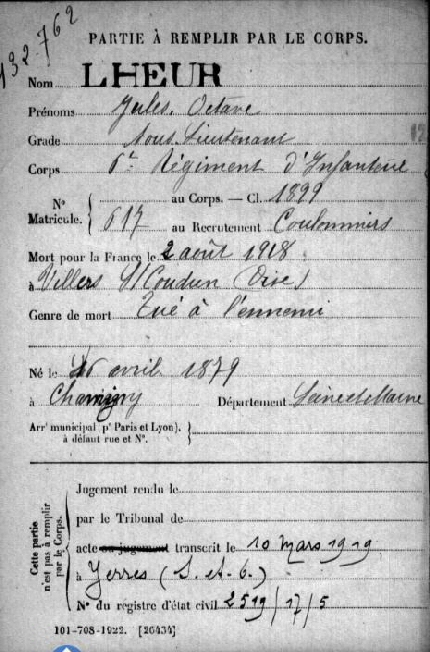 132.762
PARTIE À REMPLIR PAR LE CORPS.
Nom LHEUR
Prénoms Jules Octave
Grade Sous Lieutenant
Corps 6e Régiment d'Infanterie
N° Matricule. { au Corps. — Cl. 1899
617 au Recrutement Coulommiers
Mort pour la France le 2 août 1918
à Villers S/Coudun (Oise)
Genre de mort Tué à l'ennemi
Né le 16 avril 1879
à Chamigny Département Seine et Marne
Arrt municipal (pr Paris et Lyon), à défaut rue et N°. }
Cette partie n'est pas à remplir par le Corps.
Jugement rendu le
par le Tribunal de
acte ou jugement transcrit le 10 mars 1919
à Yerres (S. et O.)
N° du registre d'état civil 2519/17/5
101-708-1922. [26434]